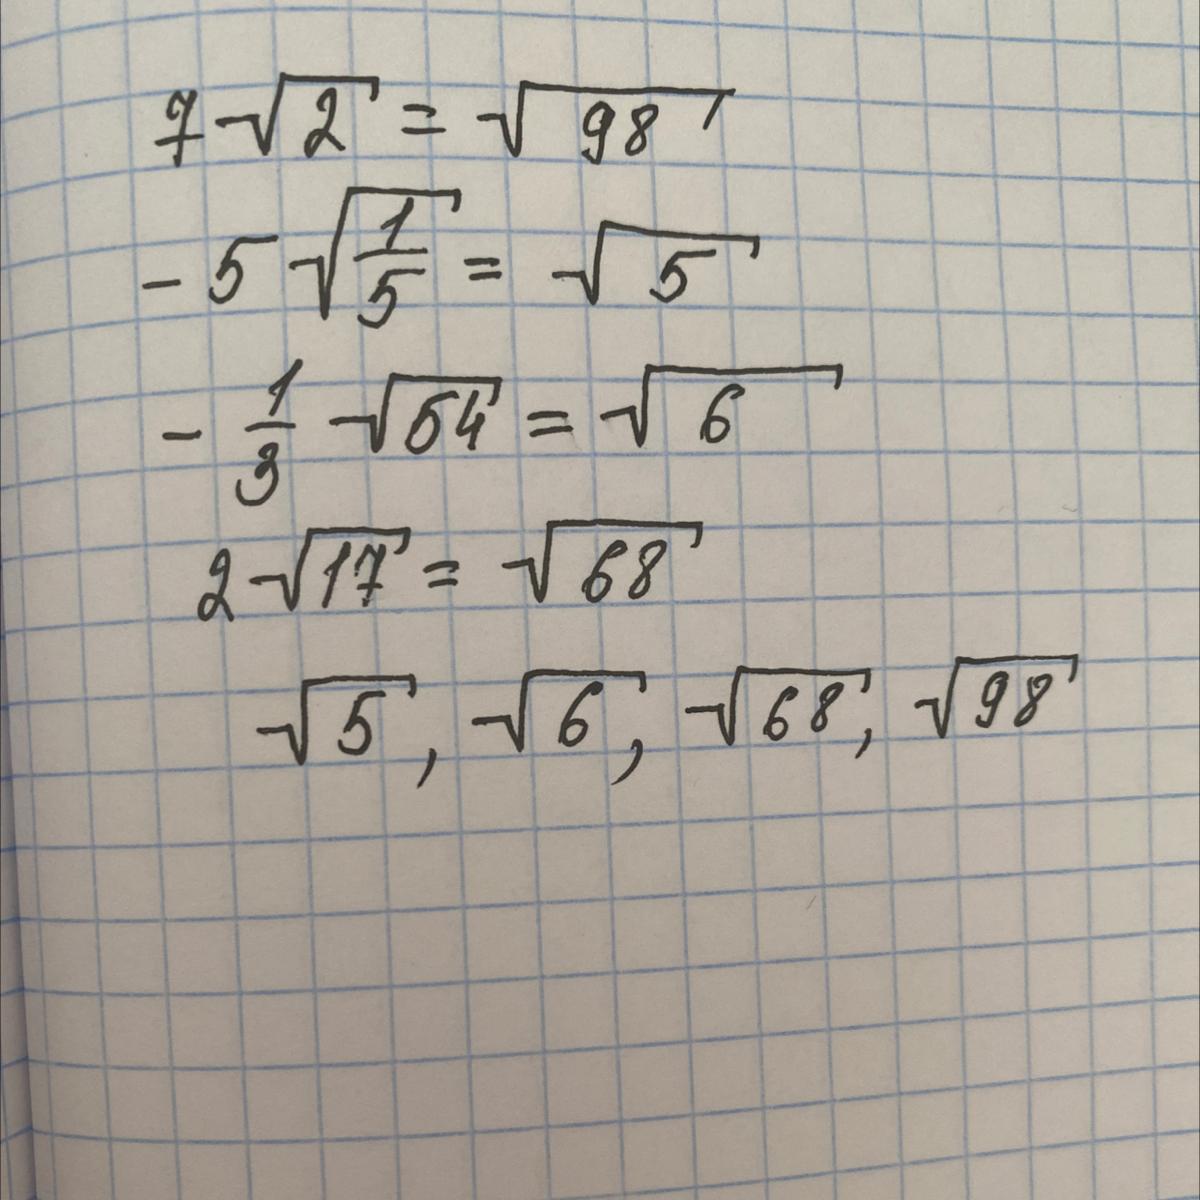 7√2 = √98
- 5√1/5 = √5
- 1/3 √54 = √6
2√17 = √68
√5, √6, √68, √98